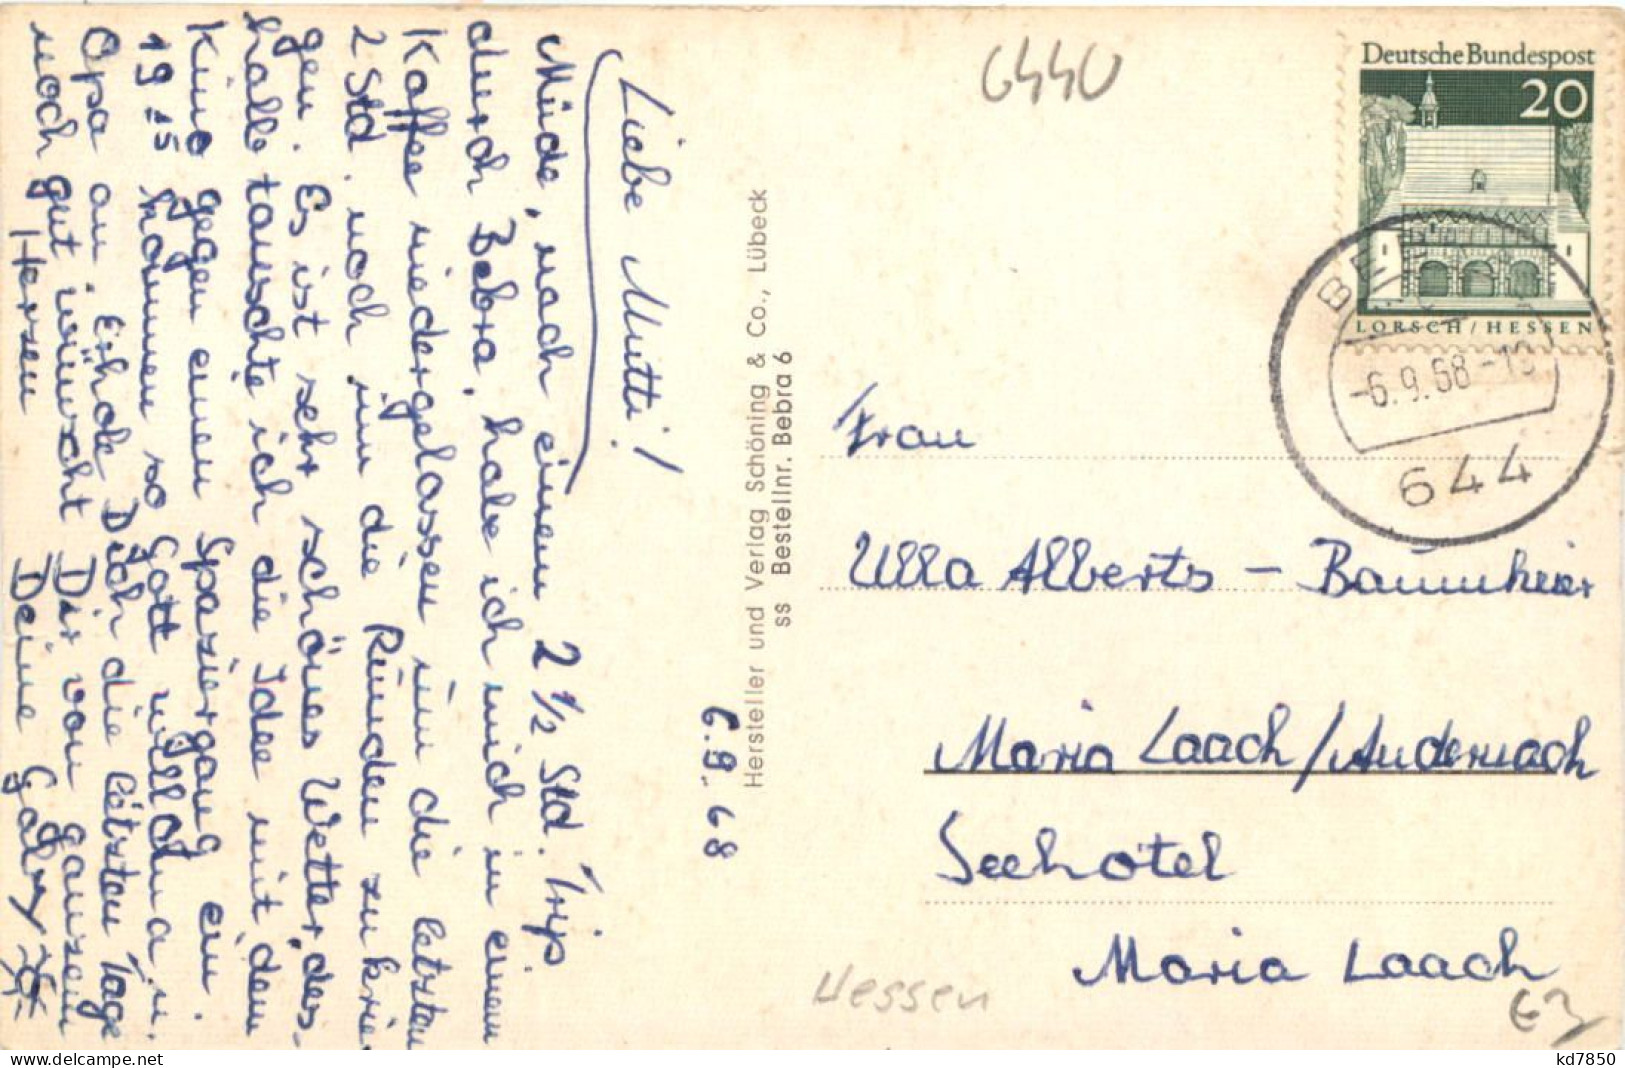 Liebe Mutti!
Müde, nach einem 2 1/2 Std. Trip
durch Bebra, habe ich mich in einem
Kaffee niedergelassen um die letzten
2 Std. noch um die Runden zu krie-
gen. Es ist sehr schönes Wetter, des-
halb tauschte ich die Idee mit dem
Kino gegen einen Spaziergang ein.
19 15 kommen so Gott will Oma u.
Opa an. Erhole Dich die letzten Tage
noch gut wünscht Dir von ganzem
Herzen Deine Gaby
6.9.68
Hersteller und Verlag Schöning & Co., Lübeck
ss Bestellnr. Bebra 6
6440
Deutsche Bundespost
20
LORSCH/HESSEN
-6.9.68-
644
Frau
Ulla Alberts - Baumheier
Maria Laach/Andernach
Seehotel
Maria Laach
Hessen
€3
kd7850